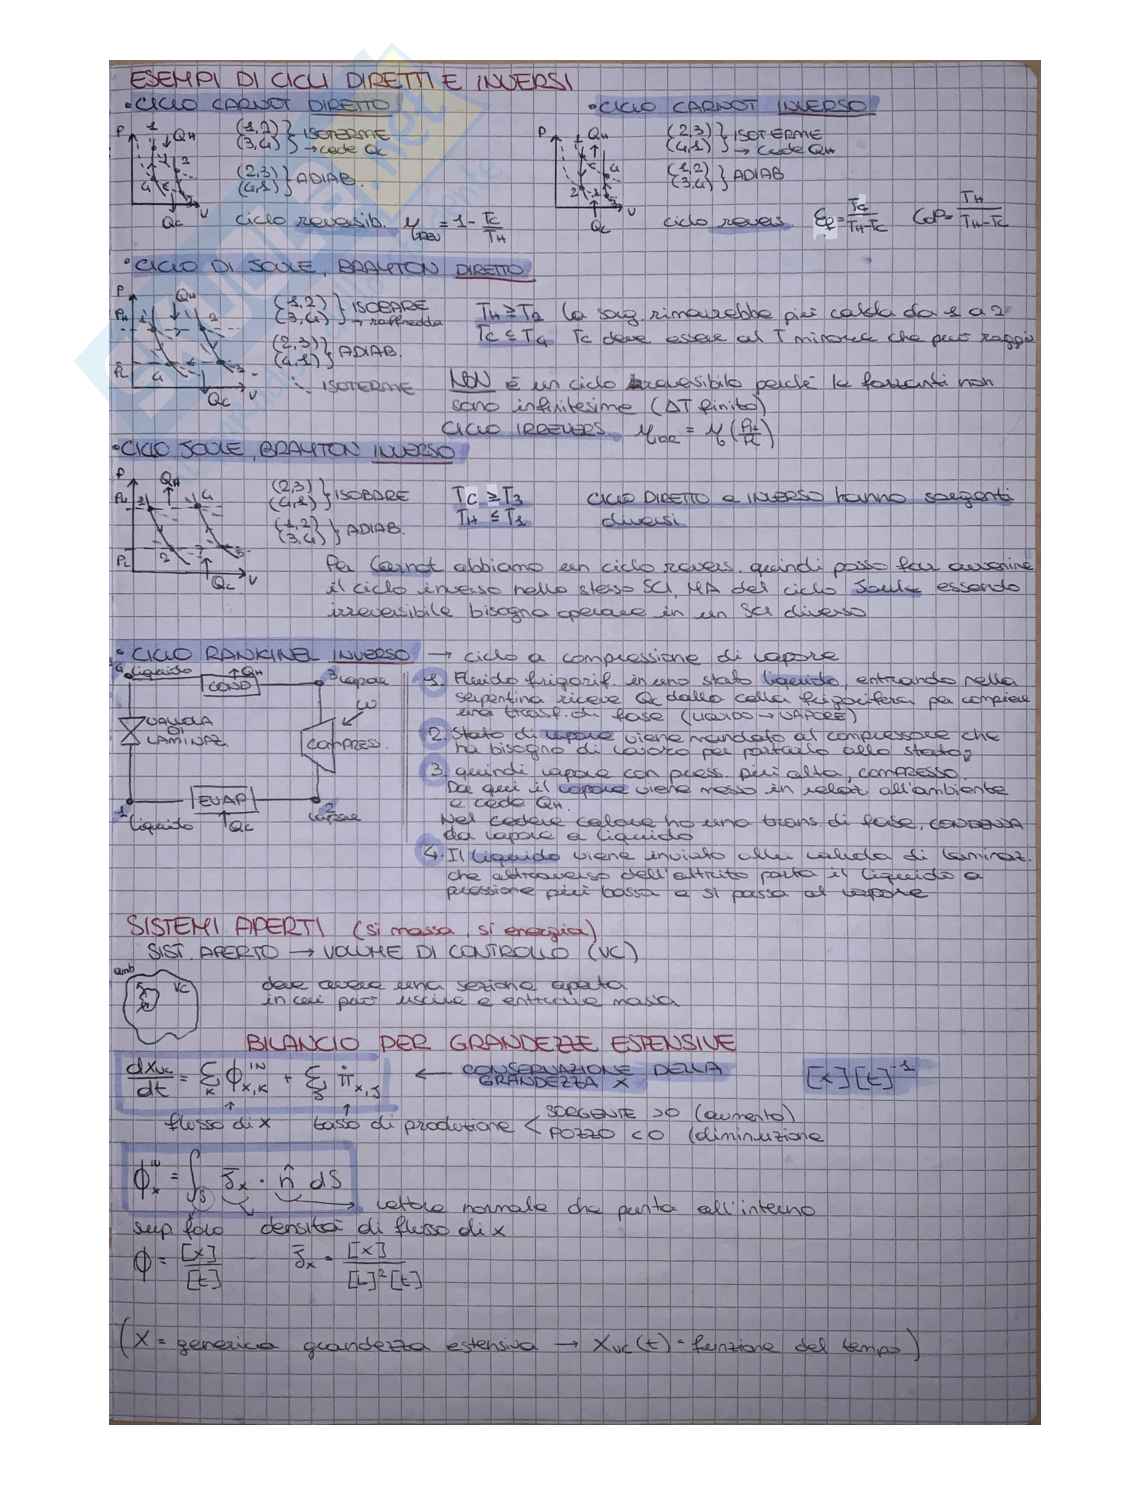 ESEMPI DI CICLI DIRETTI E INVERSI
• CICLO CARNOT DIRETTO
P
1
QH
2
4
3
V
QC
(1,2) } ISOTERME
(3,4) } → cede QC
(2,3) } ADIAB.
(4,1)
ciclo reversib. ηREV = 1 - TC/TH
• CICLO CARNOT INVERSO
P
QH
1
4
2
3
V
QC
(2,3) } ISOTERME
(4,1) } → cede QH
(1,2) } ADIAB
(3,4)
ciclo revers εF = TC/(TH-TC) COP = TH/(TH-TC)
• CICLO DI JOULE, BRAYTON DIRETTO
P
QH
PH 1 2
PL 4 3
QC V
(1,2) } ISOBARE
(3,4) } → raffredda
(2,3) } ADIAB.
(4,1)
ISOTERME
TH ≥ T2 la sorg. rimarrebbe più calda da 1 a 2
TC ≤ T4 TC deve essere al T minore che può raggiu
NON è un ciclo reversibile perché le forzanti non
sono infinitesime (ΔT finito)
CICLO IRREVERS.
• CICLO JOULE, BRAYTON INVERSO
P
QH
PH 1 4
PL 2 3
QC V
(2,3) } ISOBARE
(4,1)
(1,2) } ADIAB.
(3,4)
TC ≥ T3
TH ≤ T1
CICLO DIRETTO e INVERSO hanno sorgenti
diversi
Per Carnot abbiamo un ciclo revers. quindi posso far avvenire
il ciclo inverso nello stesso SCI, MA del ciclo Joule essendo
irreversibile bisogna operare in un SCI diverso
• CICLO RANKINEL INVERSO → ciclo a compressione di vapore
4 liquido
QH
COND
3 vapore
VALVOLA
DI
LAMINAZ
W
COMPRES.
1
EVAP
2
liquido
QC
vapore
1. Fluido frigorif. in uno stato liquido, entrando nella
serpentina riceve QC dalla cella frigorifera per compiere
una trasf. di fase (LIQUIDO → VAPORE)
2. Stato di vapore viene mandato al compressore che
ha bisogno di lavoro per portarlo allo stato
3. quindi vapore con press. più alta, COMPRESSO.
Da qui il vapore viene messo in relaz all'ambiente
e cede QH.
Nel cedere calore ho una trans. di fase, CONDENSA
da vapore a liquido
4. Il liquido viene inviato alla valvola di laminaz.
che attraverso dell'attrito porta il liquido a
pressione più bassa e si passa al vapore
SISTEMI APERTI (si massa, si energia)
SIST. APERTO → VOLUME DI CONTROLLO (VC)
amb
VC
deve avere una sezione aperta
in cui può uscire e entrare massa
BILANCIO PER GRANDEZZE ESTENSIVE
dXVC/dt = Σk ϕx,k^IN + Σj π̇x,j ← CONSERVAZIONE DELLA
GRANDEZZA X
[x][t]⁻¹
flusso di x tasso di produzione < SORGENTE >0 (aumento)
POZZO <0 (diminuzione
ϕx^IN = ∫S J̄x · n̂ dS
→ vettore normale che punta all'interno
sup. foro densità di flusso di x
ϕ = [x]/[t] J̄x = [x]/[L]²[t]
(X = generica grandezza estensiva → XVC(t) = funzione del tempo)